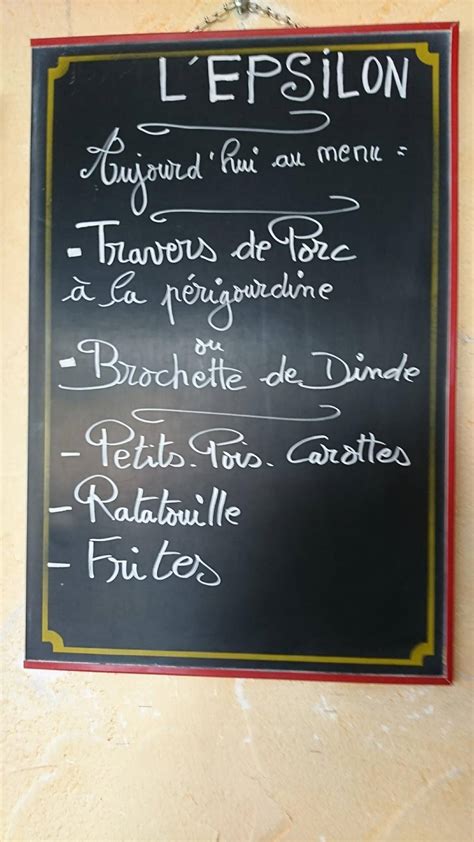 L'EPSiLON
Aujourd'hui au menu =
- Travers de Porc
à la périgourdine
ou
- Brochette de Dinde
- Petits. Pois. Carottes
- Ratatouille
- Frites